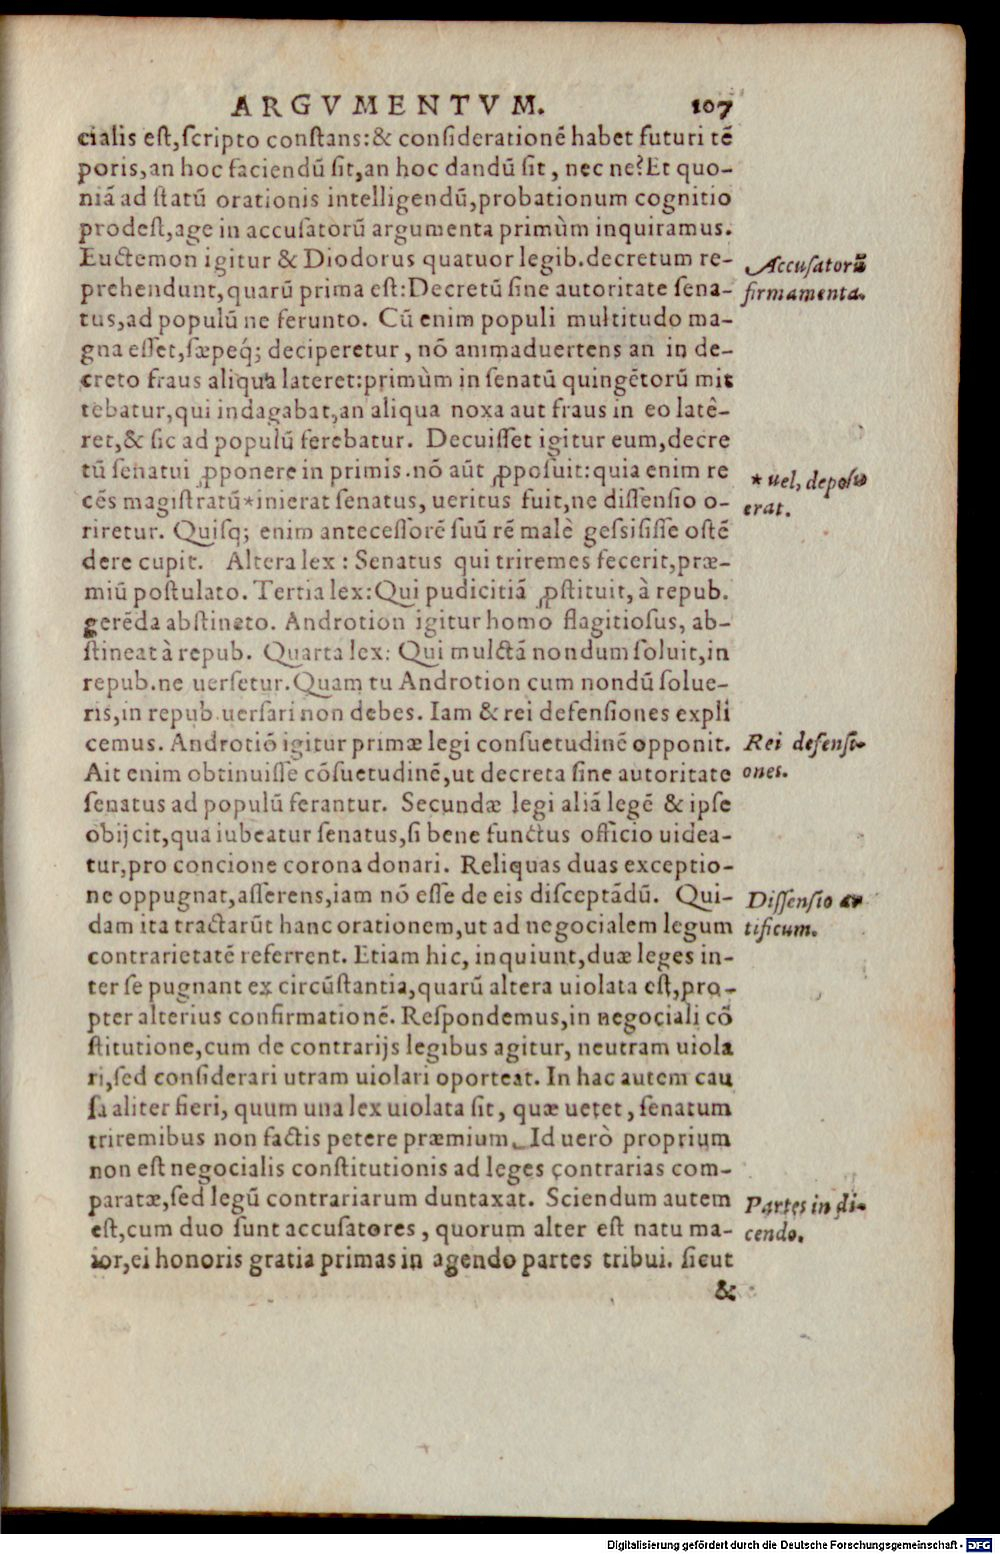 ARGVMENTVM. 107
cialis est, scripto constans:& considerationẽ habet futuri tẽ
poris, an hoc faciendũ sit, an hoc dandũ sit, nec ne? Et quo-
niã ad statũ orationis intelligendũ, probationum cognitio
prodest, age in accusatorũ argumenta primùm inquiramus.
Euctemon igitur & Diodorus quatuor legib. decretum re-
prehendunt, quarũ prima est: Decretũ sine autoritate sena-
tus, ad populũ ne ferunto. Cũ enim populi multitudo ma-
gna esset, sæpeq́; deciperetur, nõ animaduertens an in de-
creto fraus aliqua lateret: primùm in senatũ quingẽtorũ mit
tebatur, qui indagabat, an aliqua noxa aut fraus in eo latê-
ret, & sic ad populũ ferebatur. Decuisset igitur eum, decre
tũ senatui ꝓponere in primis. nõ aũt ꝓposuit: quia enim re
cẽs magistratũ*inierat senatus, ueritus fuit, ne dissensio o-
riretur. Quisq; enim antecessorẽ suũ rẽ malè gessisisse ostẽ
dere cupit. Altera lex: Senatus qui triremes fecerit, præ-
miũ postulato. Tertia lex: Qui pudicitiã ꝓstituit, à repub.
gerẽda abstineto. Androtion igitur homo flagitiosus, ab-
stineat à repub. Quarta lex: Qui mulctã nondum soluit, in
repub. ne uersetur. Quam tu Androtion cum nondũ solue-
ris, in repub. uersari non debes. Iam & rei defensiones expli
cemus. Androtiõ igitur primæ legi consuetudinẽ opponit.
Ait enim obtinuisse cõsuetudinẽ, ut decreta sine autoritate
senatus ad populũ ferantur. Secundæ legi aliã legẽ & ipse
obijcit, qua iubeatur senatus, si bene functus officio uidea-
tur, pro concione corona donari. Reliquas duas exceptio-
ne oppugnat, asserens, iam nõ esse de eis disceptãdũ. Qui-
dam ita tractarũt hanc orationem, ut ad negocialem legum
contrarietatẽ referrent. Etiam hic, inquiunt, duæ leges in-
ter se pugnant ex circũstantia, quarũ altera uiolata est, pro-
pter alterius confirmationẽ. Respondemus, in negociali cõ
stitutione, cum de contrarijs legibus agitur, neutram uiola
ri, sed considerari utram uiolari oporteat. In hac autem cau
sa aliter fieri, quum una lex uiolata sit, quæ uetet, senatum
triremibus non factis petere præmium. Id uerò proprium
non est negocialis constitutionis ad leges contrarias com-
paratæ, sed legũ contrariarum duntaxat. Sciendum autem
est, cum duo sunt accusatores, quorum alter est natu ma-
ior, ei honoris gratia primas in agendo partes tribui. sicut
&
Accusatorũ
firmamenta.
* uel, deposu
erat.
Rei defensi-
ones.
Dissensio ar
tificum.
Partes in di-
cendo.
Digitalisierung gefördert durch die Deutsche Forschungsgemeinschaft - DFG